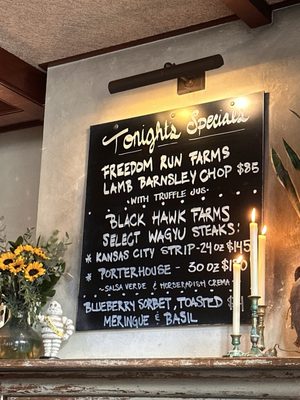 Tonights Specials
FREEDOM RUN FARMS
LAMB BARNSLEY CHOP $85
-WITH TRUFFLE JUS-
BLACK HAWK FARMS
SELECT WAGYU STEAKS
* KANSAS CITY STRIP-24oz $145
* PORTERHOUSE - 30oz
-SALSA VERDE & HORSERADISH CREAM-
BLUEBERRY SORBET, TOASTED
MERINGUE & BASIL